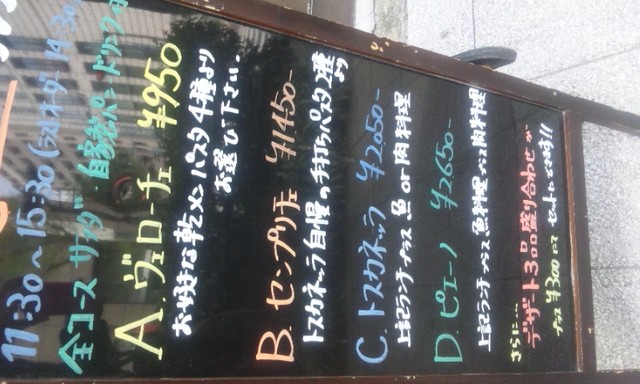 11:30〜15:30(ラストオーダー 14:30)
全コース サラダ・自家製パン・ドリンク
A. ヴェローチェ ¥950
お好きな乾メンパスタ4種より
お選び下さい。
B. センプリチェ ¥1450-
トスカネッラ自慢の手打ちパスタ2種より
C. トスカネッラ ¥2050-
上記ランチプラス 魚 or 肉料理
D. ピエーノ ¥2650-
上記ランチプラス 魚料理 プラス 肉料理
さらに…
デザート3品盛り合わせが
プラス ¥300にて セットにできます!!